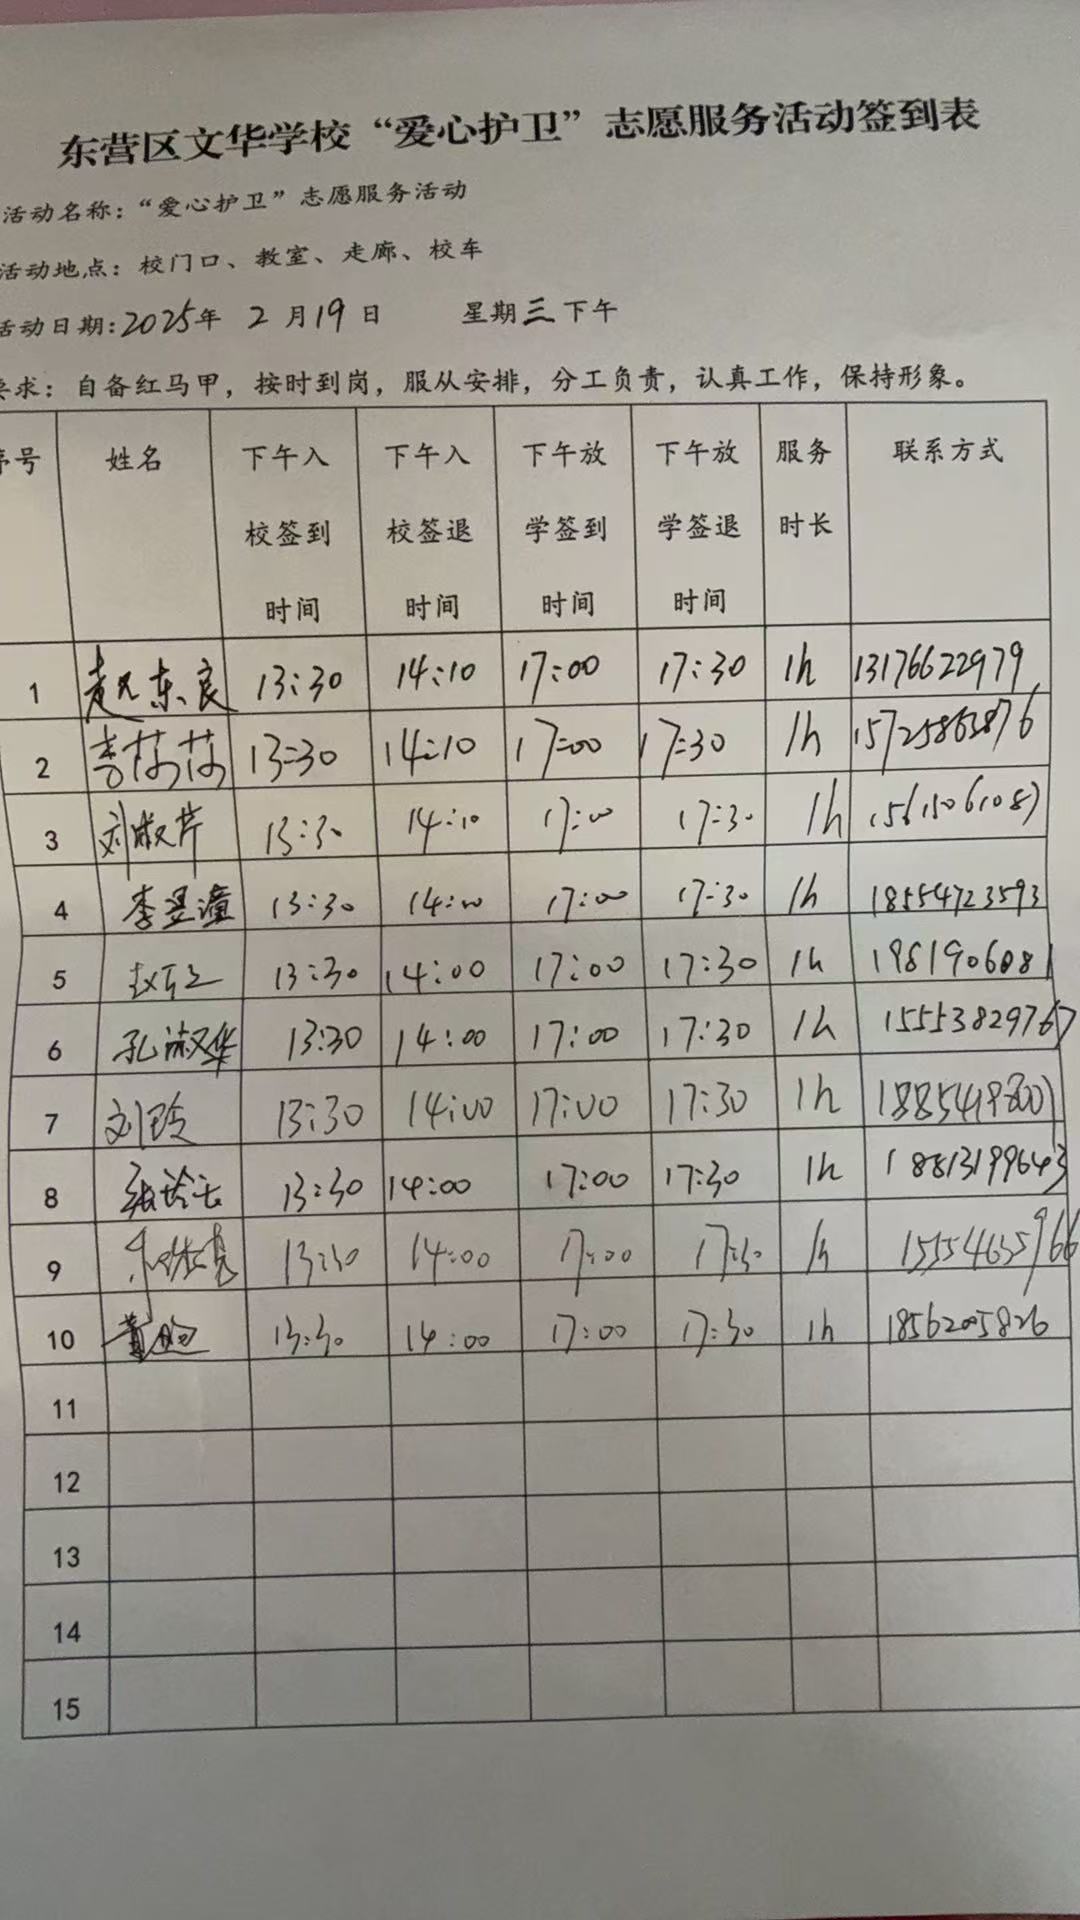 东营区文华学校“爱心护卫”志愿服务活动签到表
活动名称：“爱心护卫”志愿服务活动
活动地点：校门口、教室、走廊、校车
活动日期:2025年 2月19日 星期三下午
要求：自备红马甲，按时到岗，服从安排，分工负责，认真工作，保持形象。
序号 姓名 下午入校签到时间 下午入校签退时间 下午放学签到时间 下午放学签退时间 服务时长 联系方式
1 赵东良 13:30 14:10 17:00 17:30 1h 13176622979
2 李莎莎 13:30 14:10 17:00 17:30 1h 15725863876
3 刘淑芹 13:30 14:10 17:00 17:30 1h 15615061087
4 李昱潼 13:30 14:00 17:00 17:30 1h 18554723593
5 13:30 14:00 17:00 17:30 1h
6 孔淑华 13:30 14:00 17:00 17:30 1h 15553829767
7 刘玲 13:30 14:00 17:00 17:30 1h
8 13:30 14:00 17:00 17:30 1h 18813199643
9 13:30 14:00 17:00 17:30 1h 15554655966
10 13:30 14:00 17:00 17:30 1h 18562005826
11
12
13
14
15